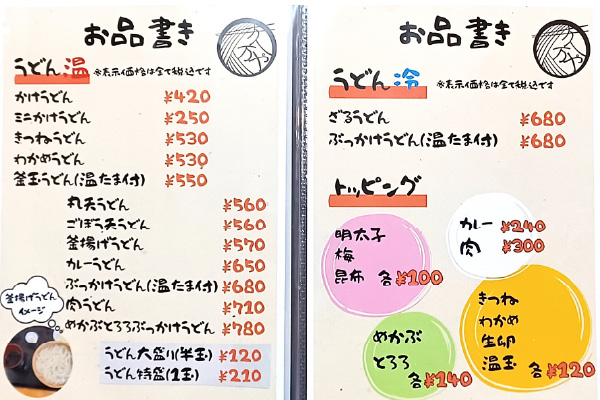 お品書き
うどん 温 ※表示価格は全て税込です
かけうどん ¥420
ミニかけうどん ¥250
きつねうどん ¥530
わかめうどん ¥530
釜玉うどん(温たま付) ¥550
丸天うどん ¥560
ごぼう天うどん ¥560
釜揚げうどん ¥570
カレーうどん ¥650
ぶっかけうどん(温たま付) ¥680
肉うどん ¥710
めかぶとろろぶっかけうどん ¥780
釜揚げうどん
イメージ
うどん大盛り(半玉) ¥120
うどん特盛(1玉) ¥210
お品書き
うどん 冷 ※表示価格は全て税込です
ざるうどん ¥680
ぶっかけうどん(温たま付) ¥680
トッピング
明太子
梅
昆布 各¥100
カレー ¥240
肉 ¥300
めかぶ
とろろ 各¥140
きつね
わかめ
生卵
温玉 各¥120